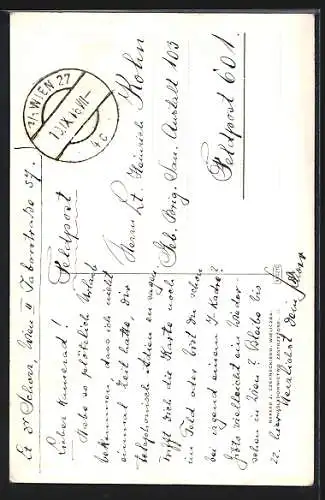 1/1 WIEN 27
13.IX.16.VII
4c
Feldpost
Herrn Lt. Heinrich Kohn
Geb. Brig. San. Anstalt 103
Feldpost 601.
Lt Schorr, Wien II Taborstraße 57.
Lieber Kamerad!
Habe so plötzlich Urlaub
bekommen, dass ich nicht
einmal Zeit hatte, dir
telephonisch Adieu zu sagen.
Trifft dich die Karte noch
im Feld oder bist du schon
bei irgend einem Kadre?
Gibts vielleicht ein Wieder-
sehen in Wien? Bleibe bis
22. Herzlichst dein Schorr